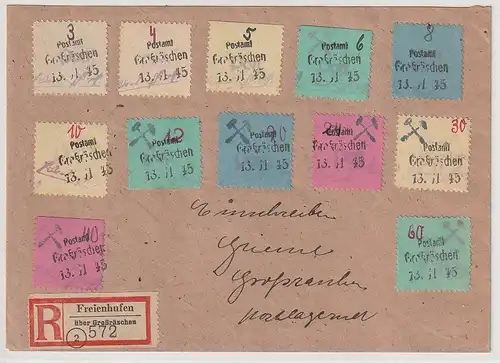 3
Postamt
Großräschen
13. 11 45
4
Postamt
Großräschen
13. 11 45
5
Postamt
Großräschen
13. 11 45
6
Postamt
Großräschen
13. 11 45
8
Postamt
Großräschen
13. 11 45
10
Postamt
Großräschen
13. 11 45
12
Postamt
Großräschen
13. 11 45
20
Postamt
Großräschen
13. 11 45
Postamt
Großräschen
13. 11 45
30
Postamt
Großräschen
13. 11 45
40
Postamt
Großräschen
13. 11 45
60
Postamt
Großräschen
13. 11 45
Einschreiben
Postlagernd
R
Freienhufen
über Großräschen
2 572